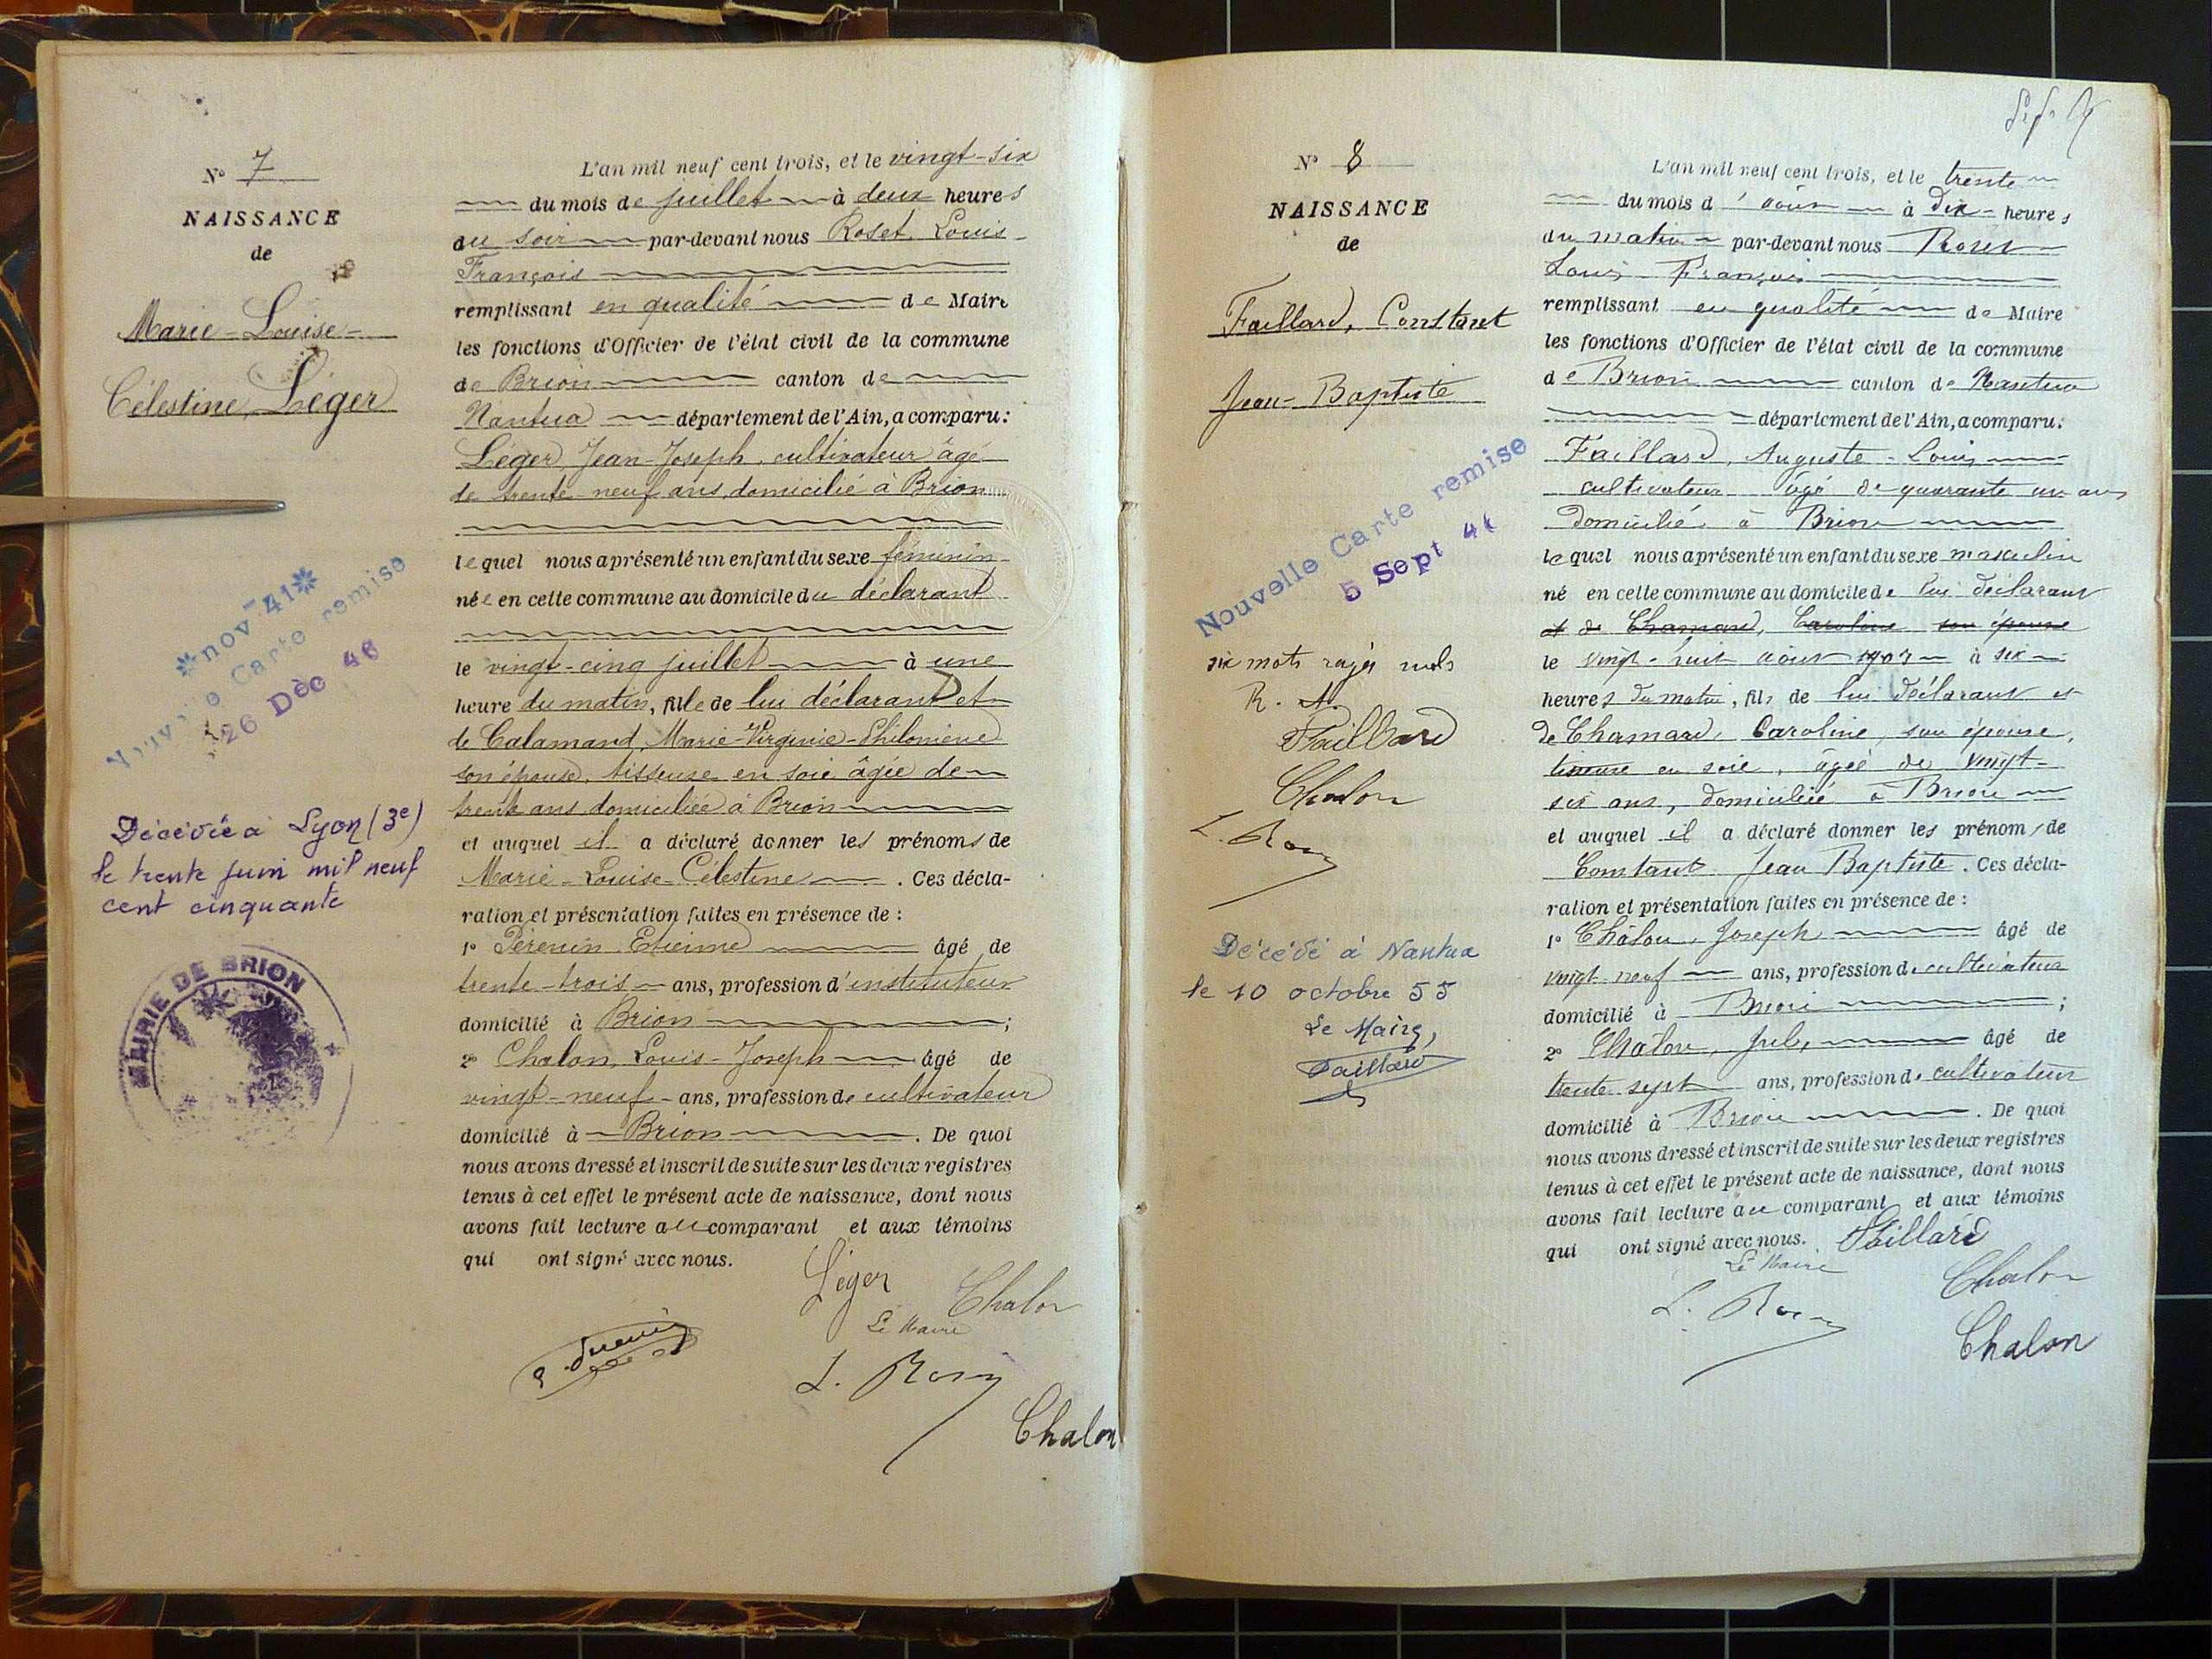 N° 7
NAISSANCE
de
Marie-Louise-
Célestine Léger
nov-41
Nouvelle Carte remise
26 Déc 46
Décédée à Lyon (3e)
le trente juin mil neuf
cent cinquante
MAIRIE DE BRION
L'an mil neuf cent trois, et le vingt-six
du mois de juillet à deux heures
du soir par-devant nous Roset, Louis-
François
remplissant en qualité de Maire
les fonctions d'Officier de l'état civil de la commune
de Brion canton de
Nantua département de l'Ain, a comparu:
Léger, Jean-Joseph, cultivateur âgé
de trente-neuf ans, domicilié à Brion
lequel nous a présenté un enfant du sexe féminin
née en cette commune au domicile du déclarant
le vingt-cinq juillet à une
heure du matin, fille de lui déclarant et
de Calamand, Marie-Virginie-Philomène
son épouse, tisseuse en soie âgée de
trente ans domiciliée à Brion
et auquel il a déclaré donner les prénoms de
Marie-Louise-Célestine. Ces décla-
ration et présentation faites en présence de :
1° Pérenin Etienne âgé de
trente-trois ans, profession d'instituteur
domicilié à Brion ;
2° Chalon, Louis-Joseph âgé de
vingt-neuf ans, profession de cultivateur
domicilié à Brion. De quoi
nous avons dressé et inscrit de suite sur les deux registres
tenus à cet effet le présent acte de naissance, dont nous
avons fait lecture au comparant et aux témoins
qui ont signé avec nous.
Léger
Chalon
Le Maire
L. Roset
Chalon
N° 8
NAISSANCE
de
Faillard, Constant
Jean-Baptiste
Nouvelle Carte remise
5 Sept 41
six mots rayés nuls
Faillard
Chalon
L. Roset
Décédé à Nantua
le 10 octobre 55
Le Maire,
Faillard
L'an mil neuf cent trois, et le trente
du mois d'août à dix heures
du matin par-devant nous Roset
Louis François
remplissant en qualité de Maire
les fonctions d'Officier de l'état civil de la commune
de Brion canton de Nantua
département de l'Ain, a comparu:
Faillard, Auguste-Louis
cultivateur âgé de quarante un ans
domicilié à Brion
lequel nous a présenté un enfant du sexe masculin
né en cette commune au domicile de lui déclarant
et de Chamard, Caroline son épouse
le vingt-huit août 1903 à six
heures du matin, fils de lui déclarant et
de Chamard, Caroline, son épouse,
tisseuse en soie, âgée de vingt-
six ans, domiciliée à Brion
et auquel il a déclaré donner les prénoms de
Constant Jean Baptiste. Ces décla-
ration et présentation faites en présence de :
1° Châlon, Joseph âgé de
vingt neuf ans, profession de cultivateur
domicilié à Brion ;
2° Chalon, Jules âgé de
trente sept ans, profession de cultivateur
domicilié à Brion. De quoi
nous avons dressé et inscrit de suite sur les deux registres
tenus à cet effet le présent acte de naissance, dont nous
avons fait lecture au comparant et aux témoins
qui ont signé avec nous. Faillard
Le Maire
Chalon
L. Roset
Chalon